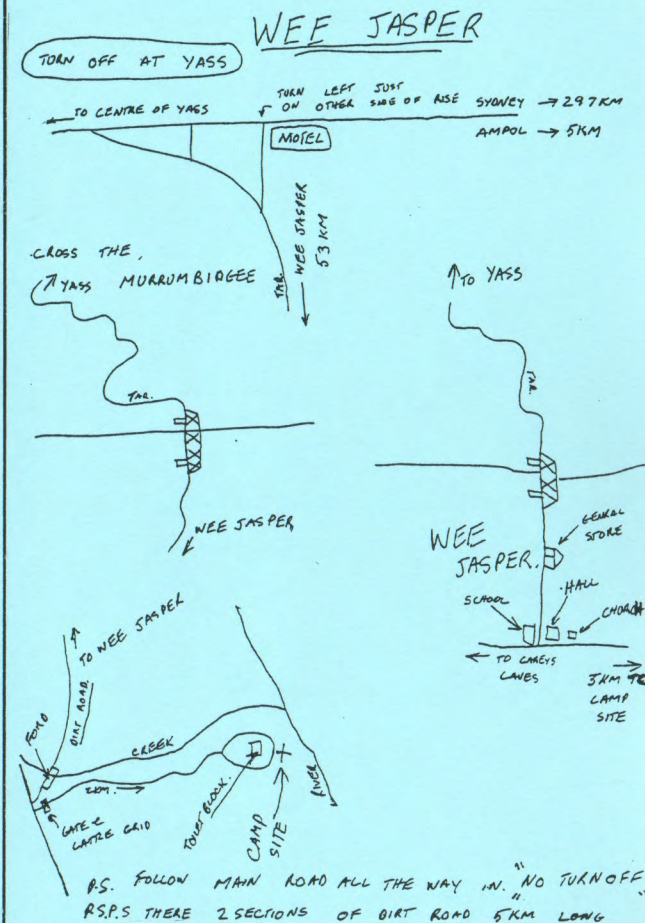 WEE JASPER
TURN OFF AT YASS
← TO CENTRE OF YASS
TURN LEFT JUST
ON OTHER SIDE OF RISE
SYDNEY → 297KM
AMPOL → 5KM
MOTEL
TAR.
WEE JASPER
53 KM
CROSS THE
MURRUMBIDGEE
YASS
TAR.
WEE JASPER
TO YASS
TAR.
WEE
JASPER.
GENRAL
STORE
SCHOOL
HALL
CHURCH
← TO CAREYS
CAVES
3KM TO
CAMP
SITE
TO WEE JASPER
DIRT ROAD.
FORD
CREEK
2KM.
GATE &
CATTLE GRID
TOILET BLOCK.
CAMP
SITE
RIVER
P.S. FOLLOW MAIN ROAD ALL THE WAY IN. "NO TURNOFF
P.S.P.S THERE 2 SECTIONS OF DIRT ROAD 5KM LONG